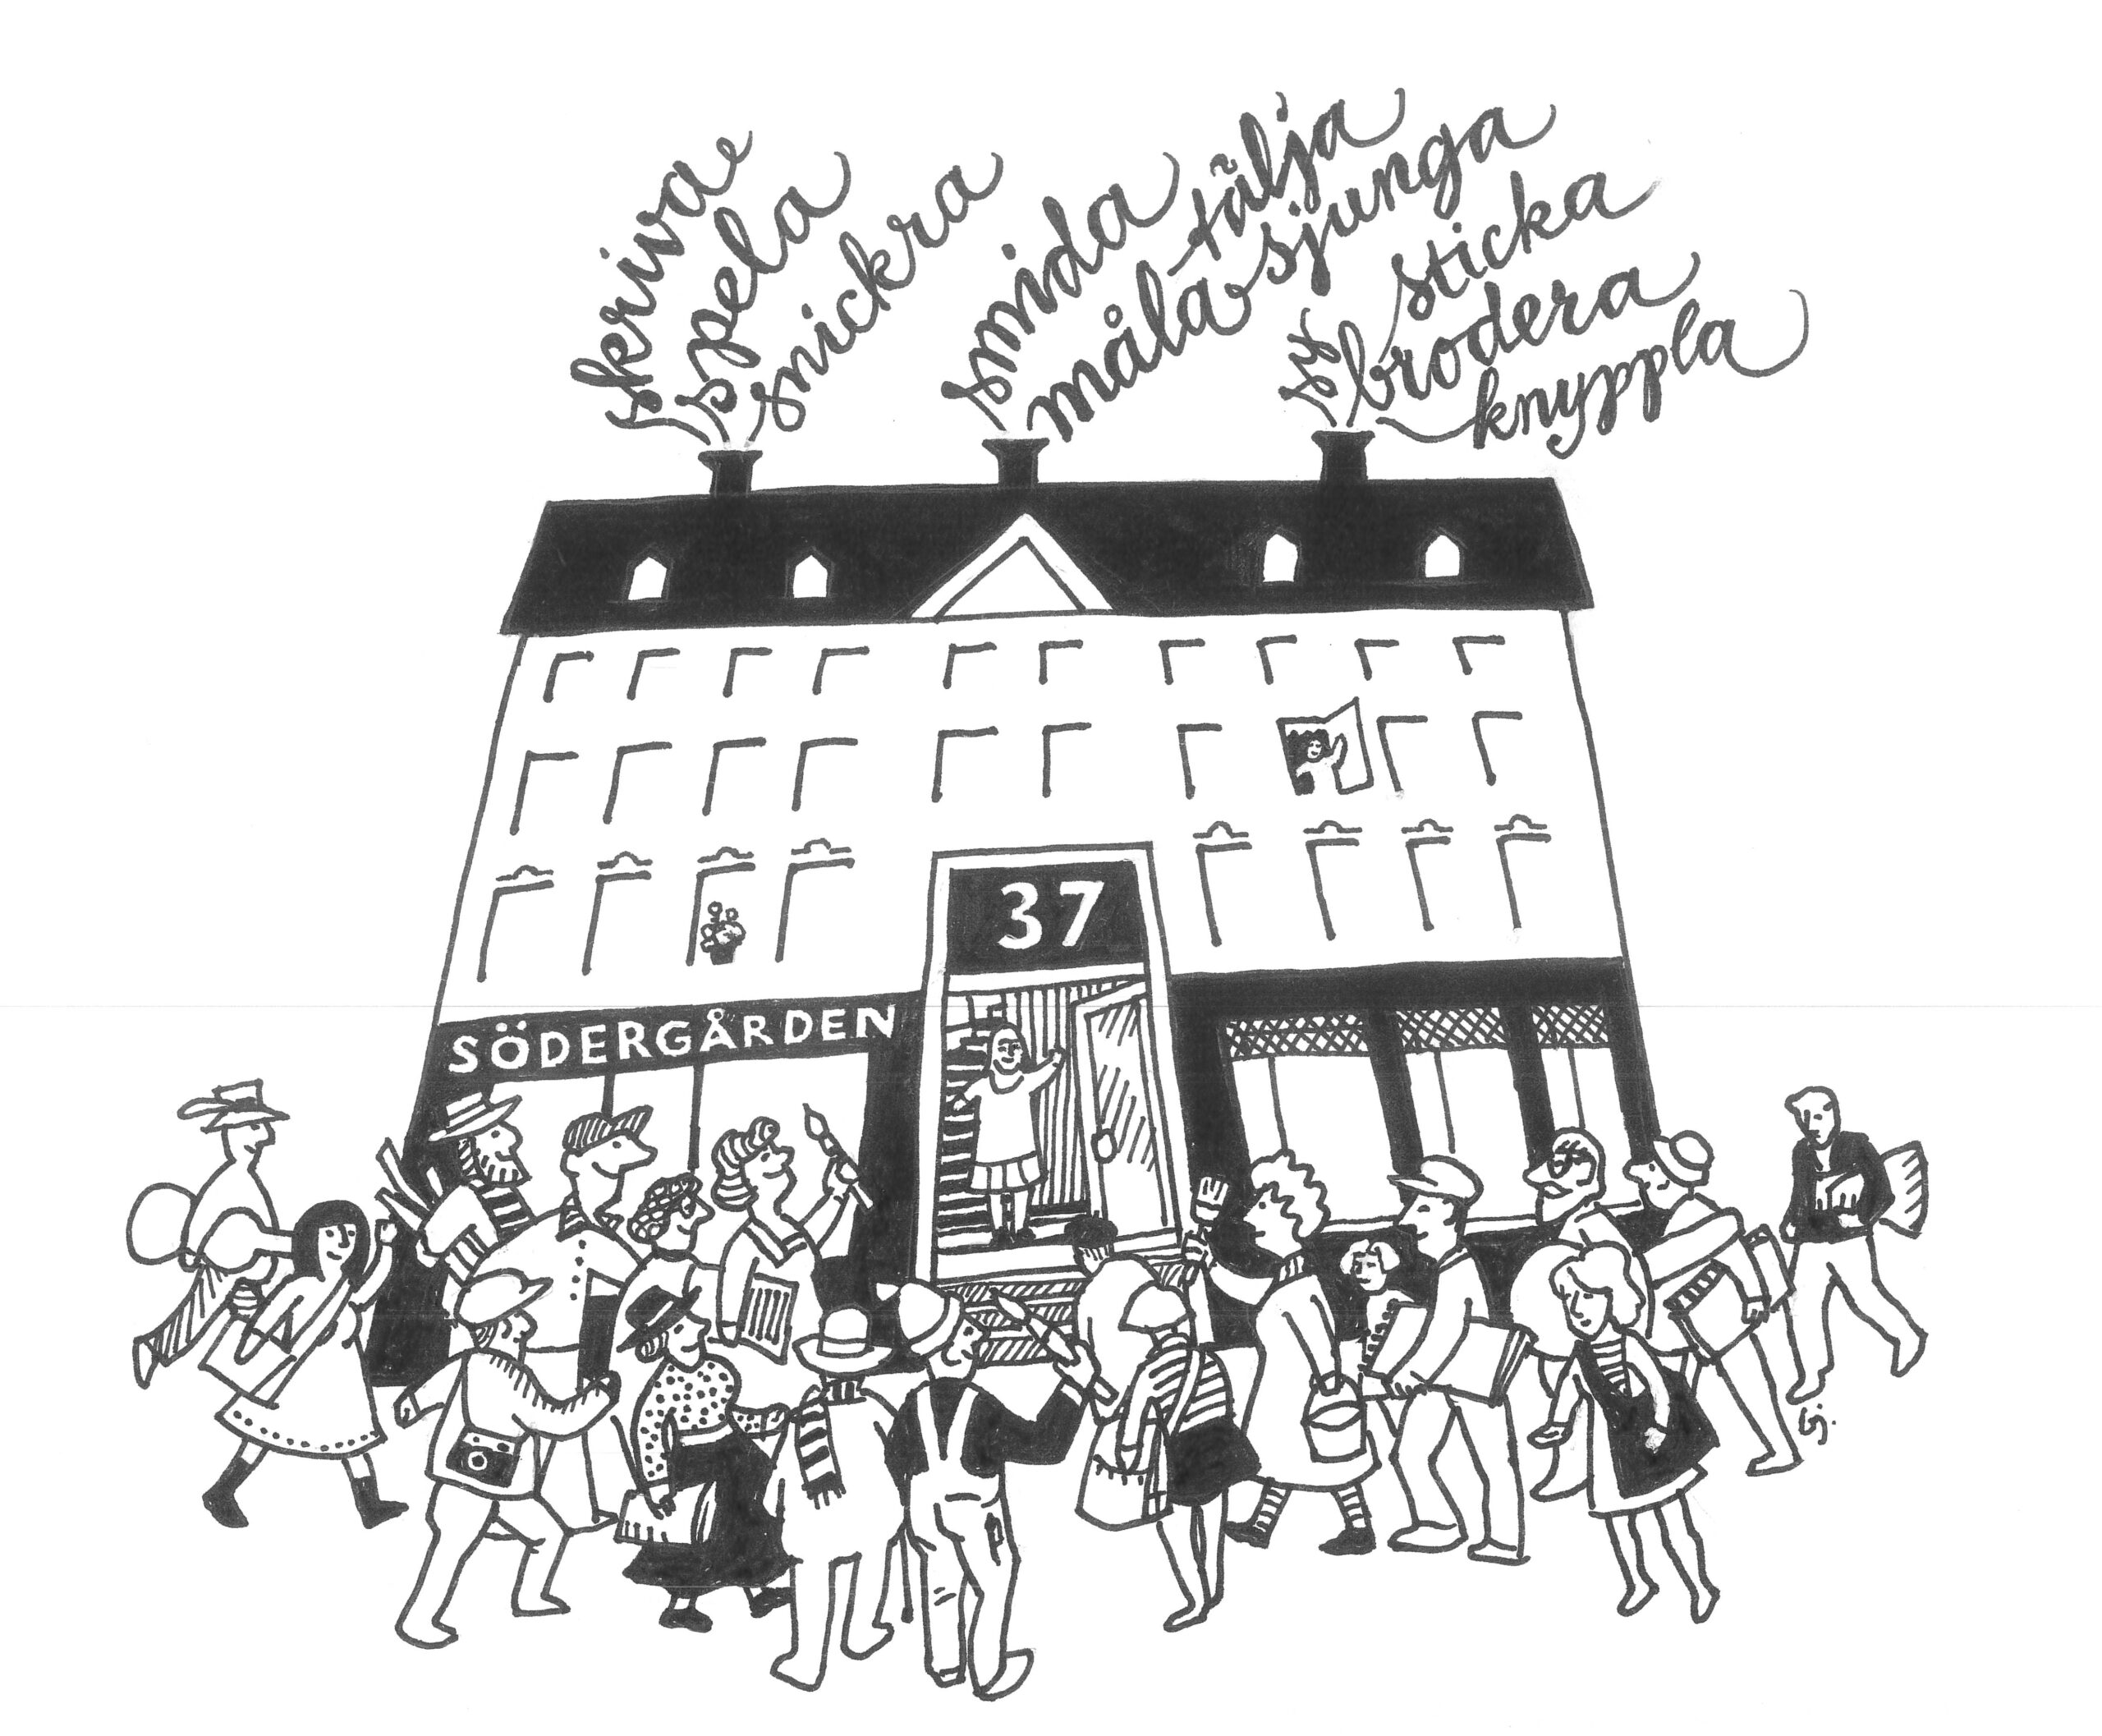 skriva
spela
snickra
smida
måla
tälja
sjunga
sy
sticka
brodera
knyppla
37
SÖDERGÅRDEN